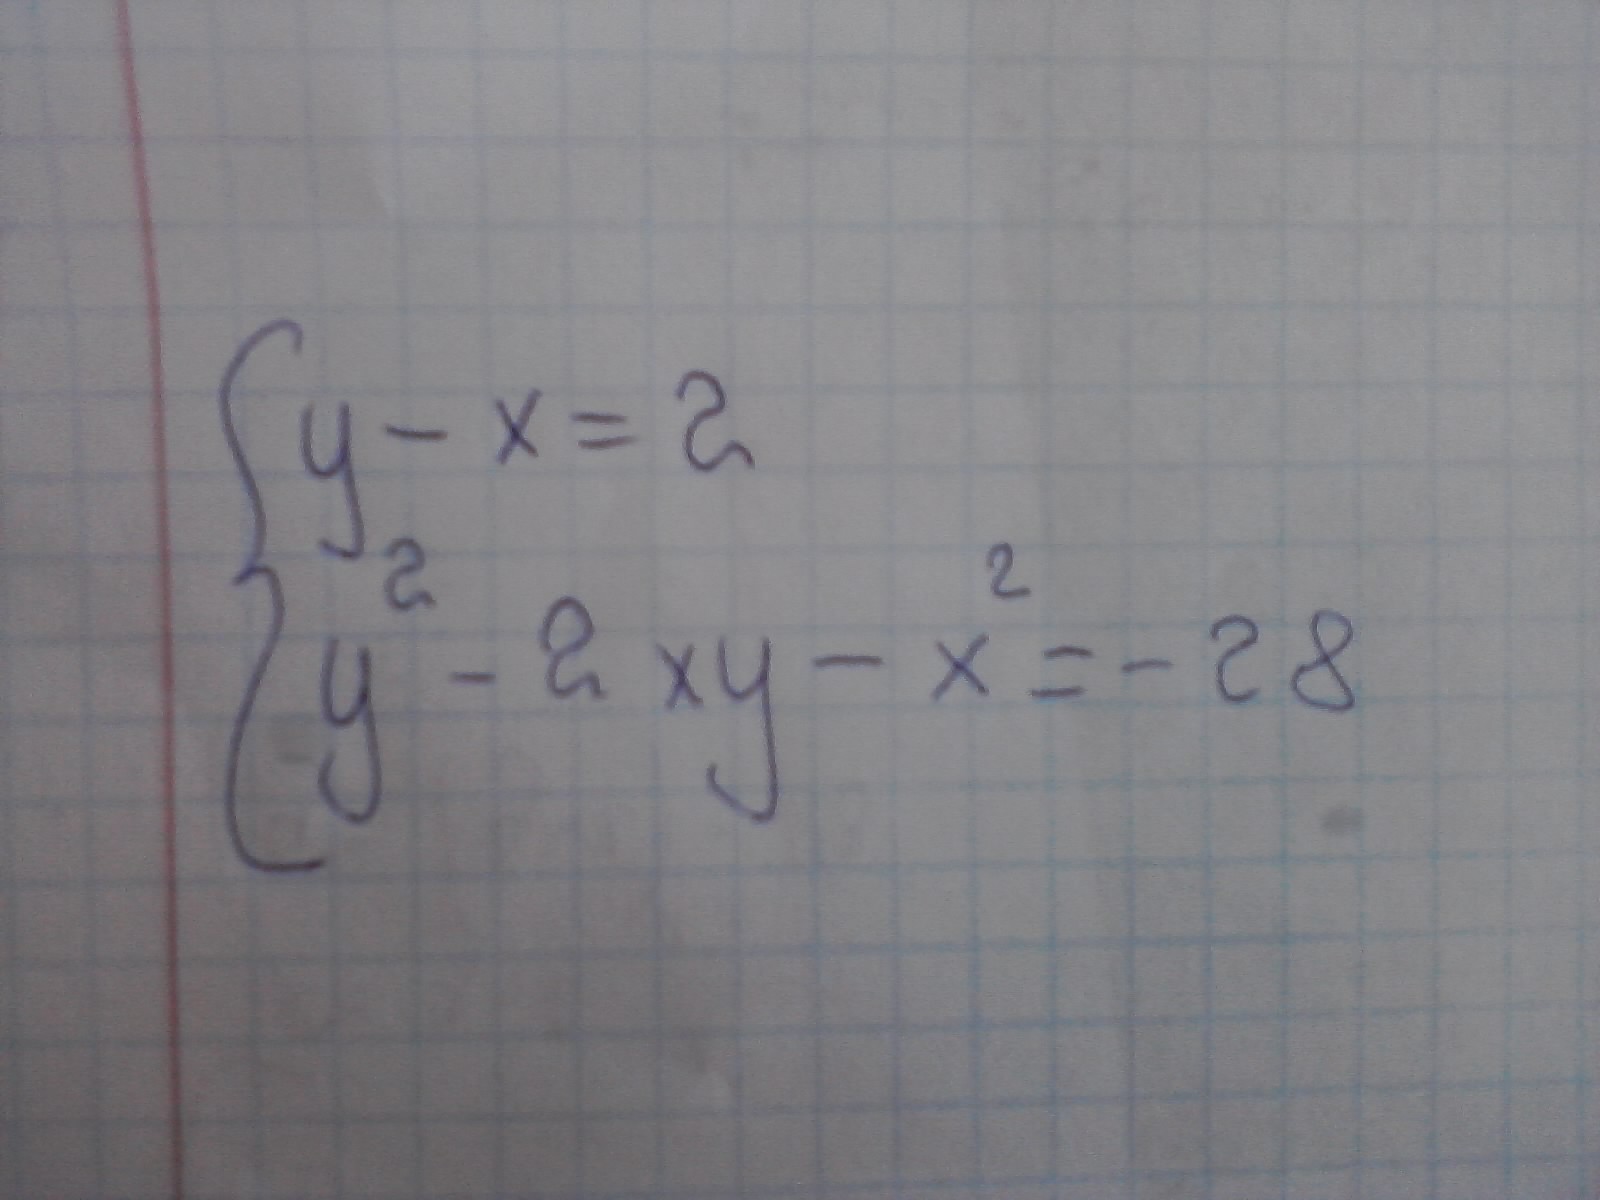 y - x = 2
y² - 2xy - x² = -28